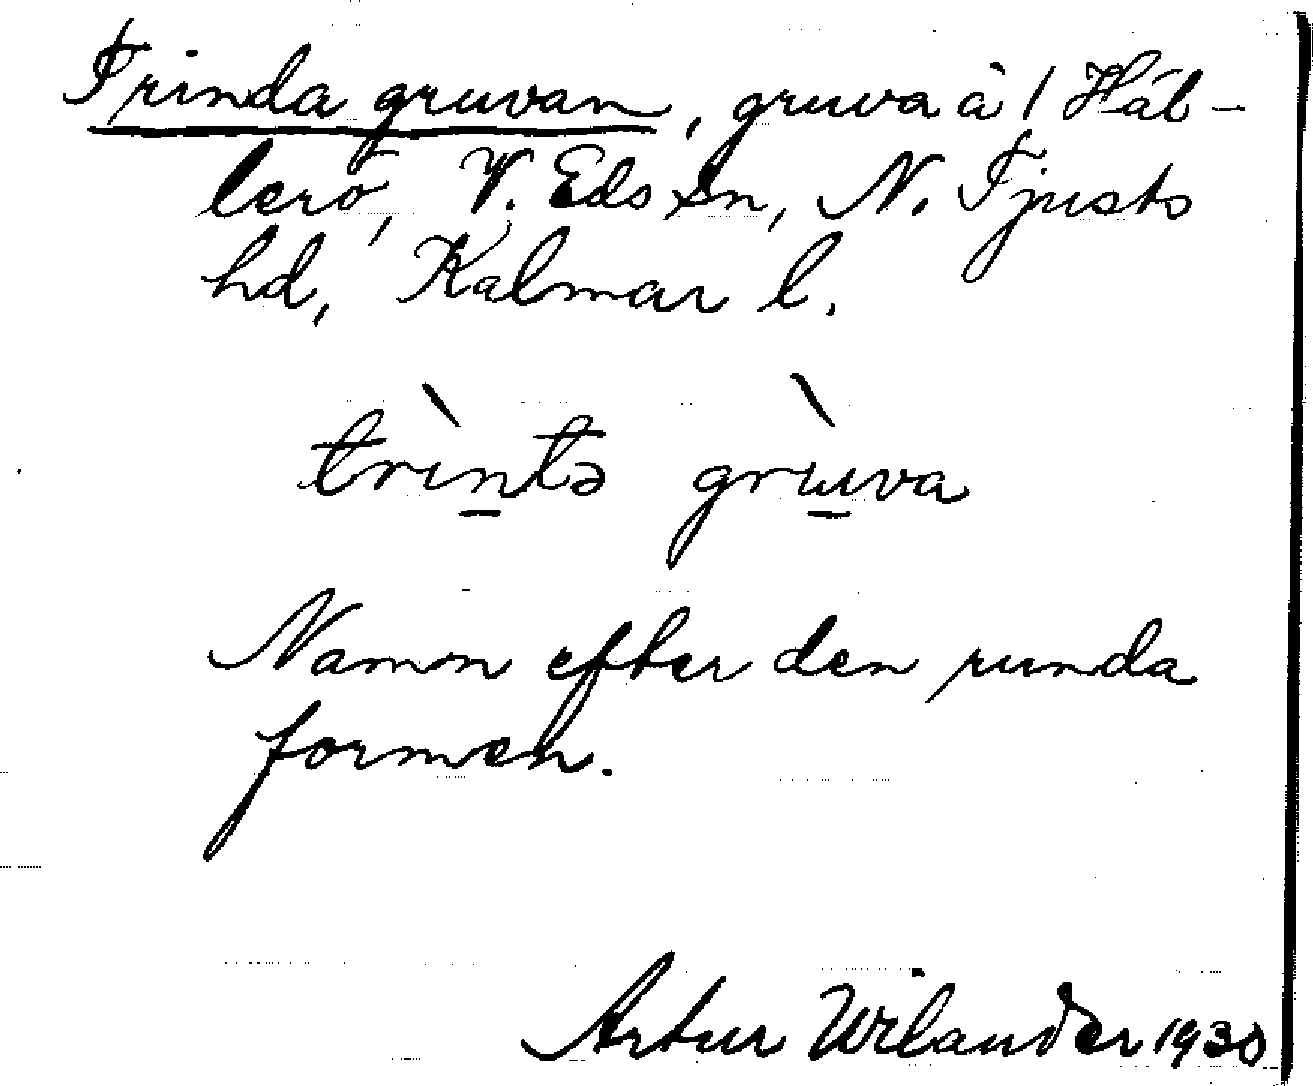 Trinda gruvan, gruva å 1 Häl-
lerö, V. Eds sn, N. Tjusts
hd, Kalmar l.
trìntə grùva
Namn efter den runda
formen.
Artur Wilander 1930